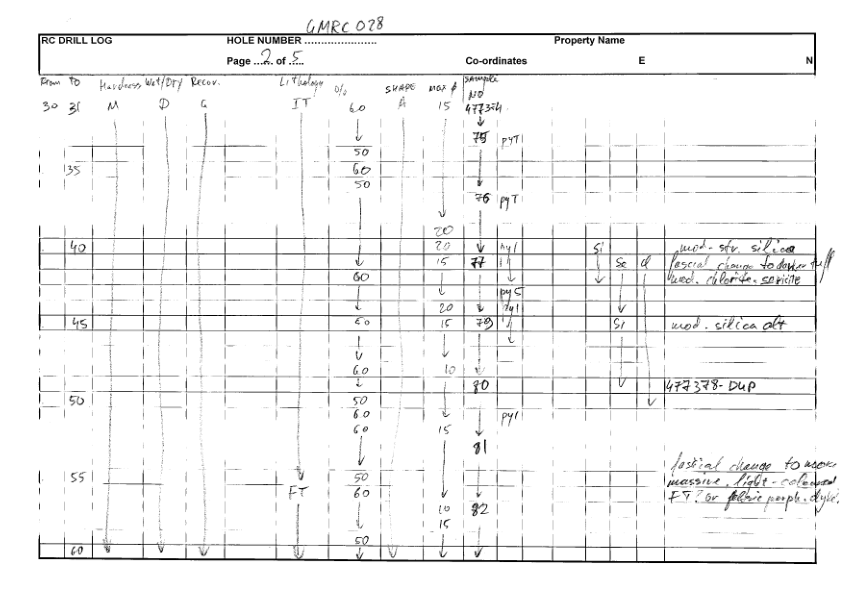 GMRC 028
RC DRILL LOG HOLE NUMBER ........................ Property Name
Page ...2.. of .5.... Co-ordinates E N
From To Hardness Wet/Dry Recov. Lithology % SHAPE MAX ϕ sample NO
30 31 M D G IT 60 A 15 477374
75 pyT
50
35 60
50
76 pyT
20
40 20 py1 Si mod - str. silica
15 77 Se cl fascial change to darker tuff
60 med. chlorite - sericite
py5
20 py1
45 60 15 79 Si mod. silica alt
60 10
80 477378 - DUP
50 50
60 py1
60 15
81
fascial change to more
55 50 massive, light - coloured
FT 60 FT? or felsic porph. dyke.
10 82
15
50
60